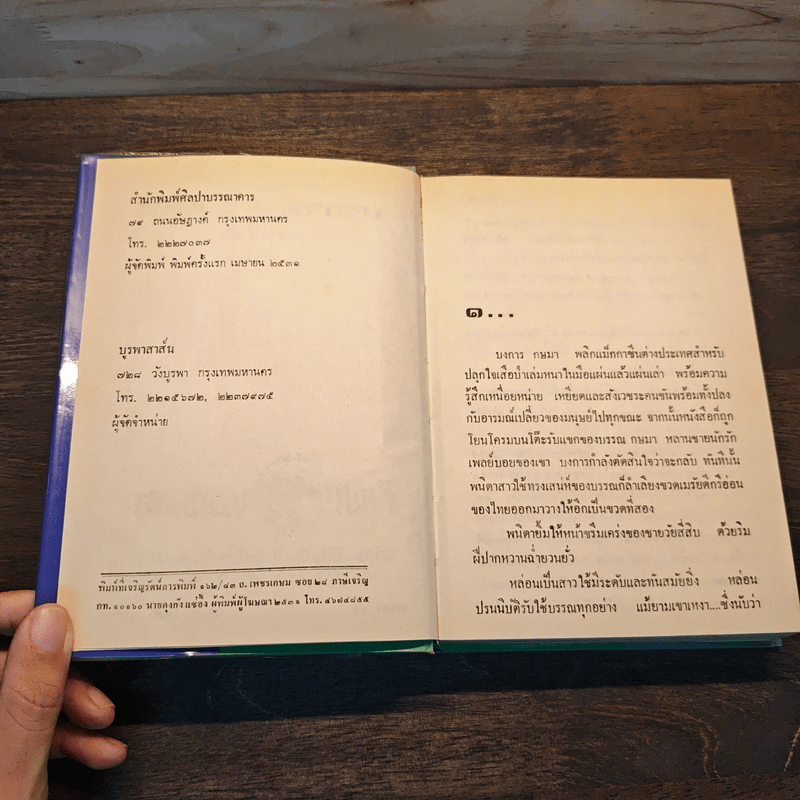 สำนักพิมพ์ศิลปาบรรณาคาร
๗๙ ถนนอัษฎางค์ กรุงเทพมหานคร
โทร. ๒๒๒๗๐๓๗
ผู้จัดพิมพ์ พิมพ์ครั้งแรก เมษายน ๒๕๓๑
บูรพาสาส์น
๗๒๘ วังบูรพา กรุงเทพมหานคร
โทร. ๒๒๑๕๖๗๒, ๒๒๓๗๙๗๕
ผู้จัดจำหน่าย
พิมพ์ที่เจริญรัตน์การพิมพ์ ๑๖๒/๘๓ ถ.เพชรเกษม ซอย ๒๘ ภาษีเจริญ
กท.๑๐๑๖๐ นายกุงกัง แซ่อึง ผู้พิมพ์ผู้โฆษณา ๒๕๓๑ โทร. ๔๖๗๔๘๕๕
๑...
บงการ กษมา พลิกแม็กกาซีนต่างประเทศสำหรับ
ปลุกใจเสือป่าเล่มหนาในมือแผ่นแล้วแผ่นเล่า พร้อมความ
รู้สึกเหนื่อยหน่าย เหยียดและสังเวชระคนขันพร้อมทั้งปลง
กับอารมณ์เปลี่ยวของมนุษย์ไปทุกขณะ จากนั้นหนังสือก็ถูก
โยนโครมบนโต๊ะรับแขกของบรรณ กษมา หลานชายนักรัก
เพลย์บอยของเขา บงการกำลังตัดสินใจว่าจะกลับ ทันทีนั้น
พนิดาสาวใช้ทรงเสน่ห์ของบรรณก็ลำเลียงขวดเมรัยดีกรีอ่อน
ของไทยออกมาวางให้อีกเป็นขวดที่สอง
พนิดายิ้มให้หน้าขรึมเคร่งของชายวัยสี่สิบ ด้วยริม
ฝีปากหวานฉ่ำยวนยั่ว
หล่อนเป็นสาวใช้มีระดับและทันสมัยยิ่ง หล่อน
ปรนนิบัติรับใช้บรรณทุกอย่าง แม้ยามเขาเหงา....ซึ่งนับว่า